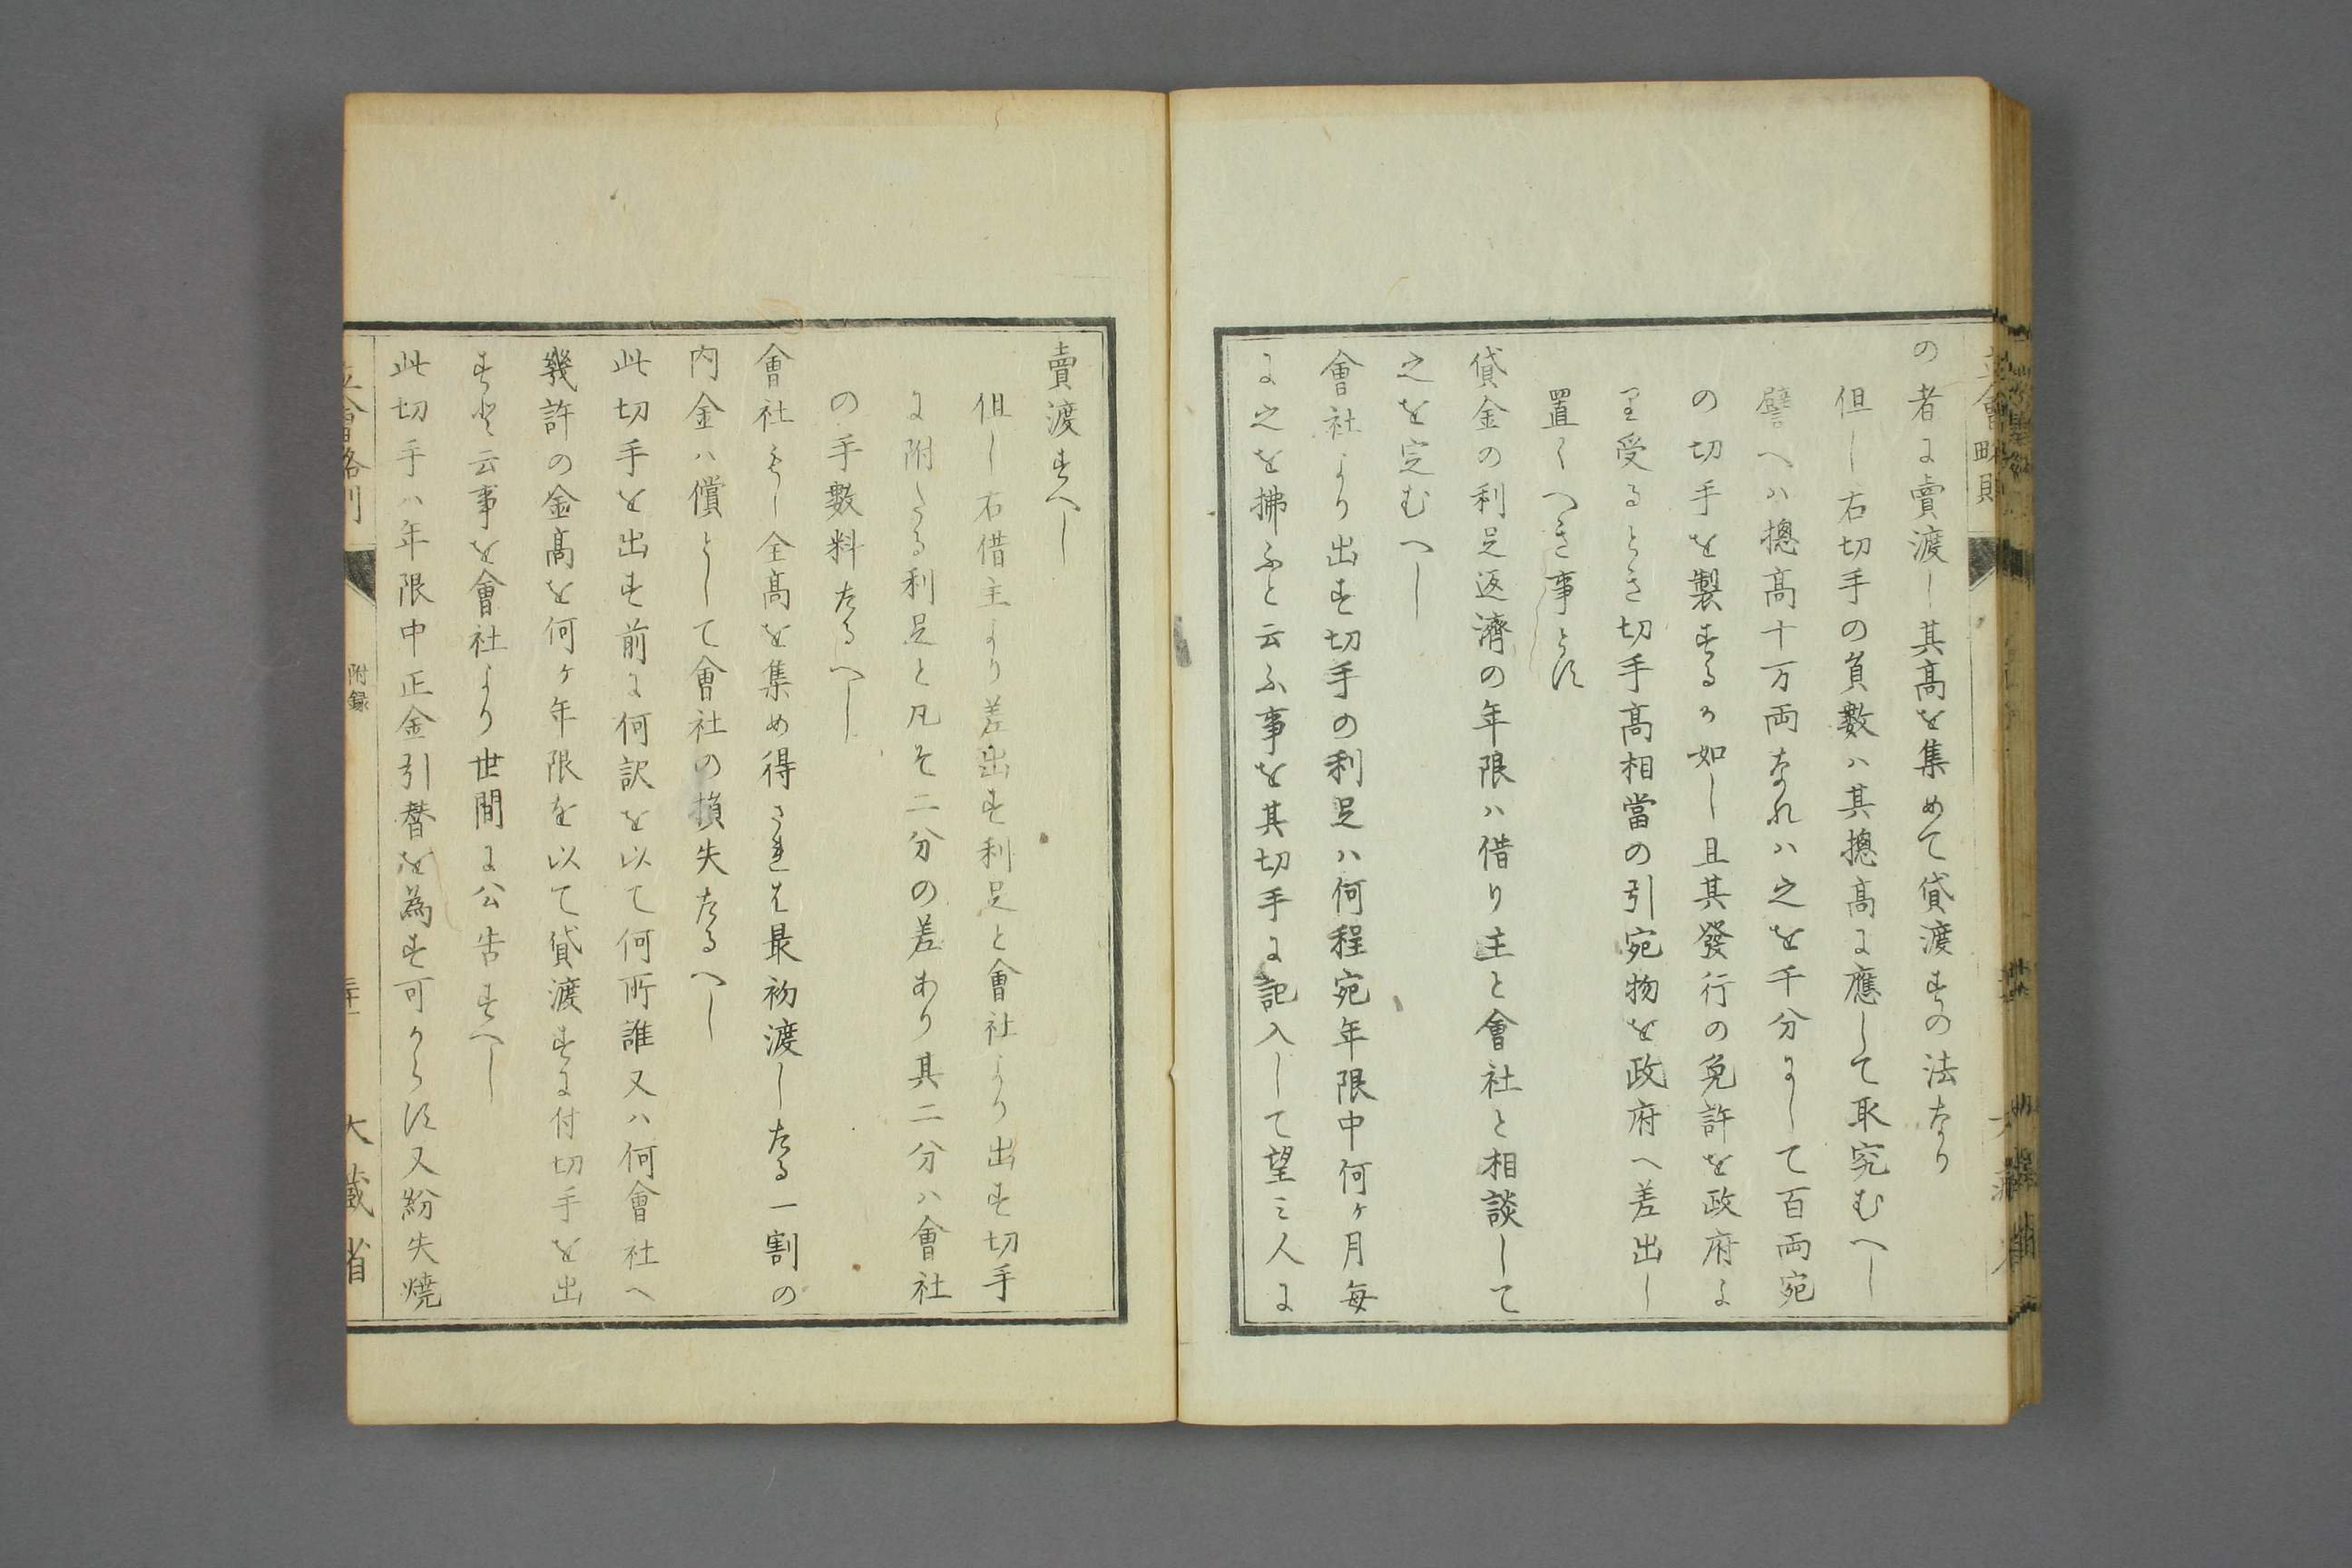 立會略則
の者に賣渡し其髙を集めて貸渡すの法なり
但し右切手の負數ハ其摠髙に應して取究むへし
譬へハ摠髙十万両なれハ之を千分にして百両宛
の切手を製するか如し且其發行の免許を政府よ
り受るとき切手髙相當の引宛物を政府へ差出し
置くへき事とす
貸金の利足返濟の年限ハ借り主と會社と相談して
之を定むへし
會社より出す切手の利足ハ何程宛年限中何ヶ月毎
に之を拂ふと云ふ事を其切手に記入して望ミ人に
賣渡すへし
但し右借主より差出す利足と會社より出す切手
に附たる利足と凡そ二分の差あり其二分ハ會社
の手數料たるへし
會社もし全髙を集め得されは最初渡したる一割の
内金ハ償として會社の損失たるへし
此切手を出す前に何訳を以て何所誰又ハ何會社へ
幾許の金髙を何ヶ年限を以て貸渡すに付切手を出
すと云事を會社より世間に公告すへし
此切手ハ年限中正金引替を為す可からす又紛失燒
立會略則
附録
大藏省